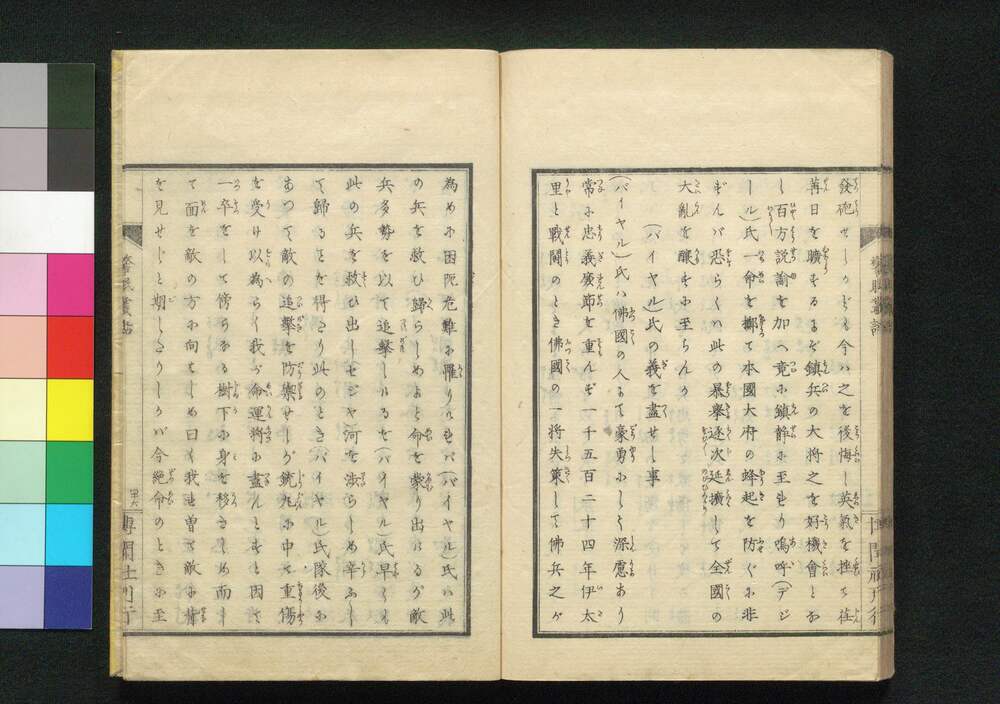 發砲せしかども今ハ之を後悔し英氣を挫て往
苒日を曠するぞ鎮兵の大將之を好機會とな
し百方説諭を加へ竟に鎮静に至れり嗚呼(デジ
ール)氏一命を擲て本國大府の蜂起を防ぐに非
ずんバ恐らくハ此の暴擧逐次延擴して全國の
大亂を釀すに至らんか
(バイヤル)氏の義を盡せし事
(バイヤル)氏ハ佛國の人にて豪勇にして深慮あり
常に忠義廉節を重んず一千五百二十四年伊太
里と戰鬪のとき佛國の一將失策して佛兵之が
為めに困阨危難に罹りけれバ(バイヤル)氏ハ此
の兵を救ひ歸らしめよと命を蒙り出けるが敵
兵多勢を以て追撃しけるを(バイヤル)氏早くも
此の兵を救ひ出しセジヤ河を渉らしめ辛ふし
て歸ることを得たり此のとき(バイヤル)氏隊後に
あつて敵の追撃を防禦せしが銃丸に中て重傷
を受け以為らく我が命運將に盡んとすと因て
一卒をして傍なる樹下に身を移さしめ而し
て面を敵の方に向はしめ曰く我れ曽て敵に背
を見せじと期したりしかバ今絶命のときに至
四六
博聞社刊行